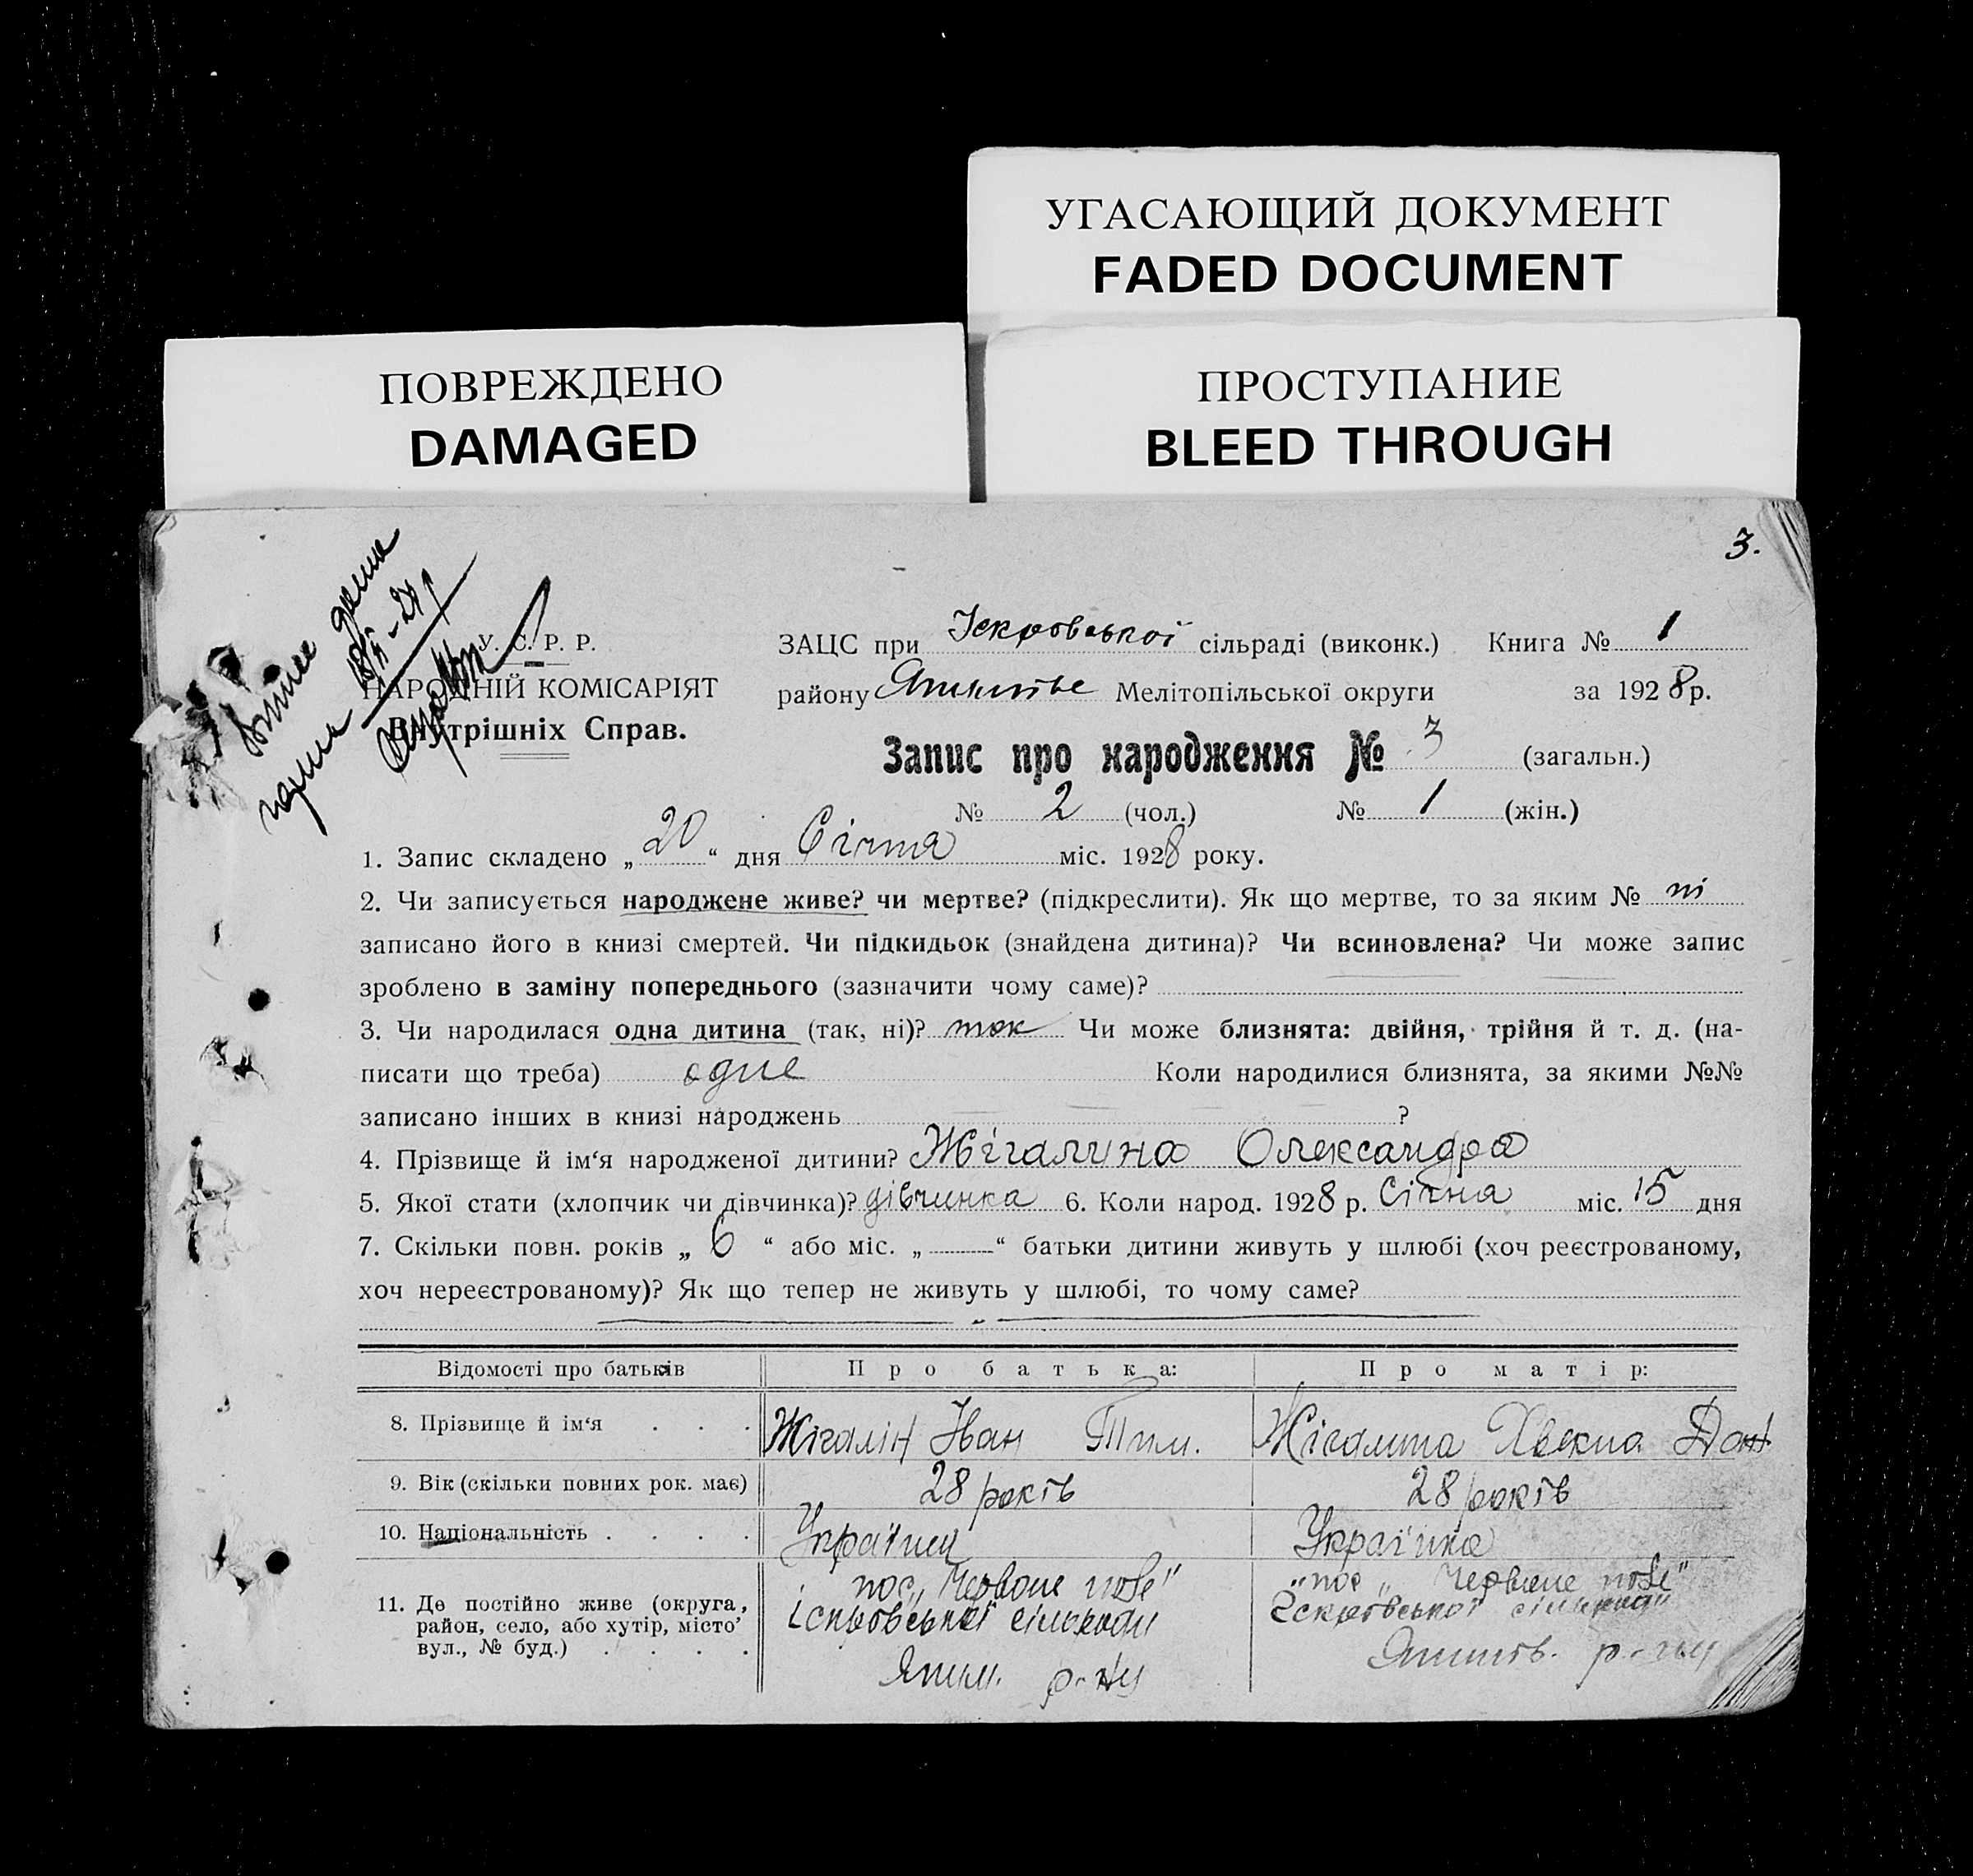 УГАСАЮЩИЙ ДОКУМЕНТ
FADED DOCUMENT
ПОВРЕЖДЕНО
DAMAGED
ПРОСТУПАНИЕ
BLEED THROUGH
3.
У. С. Р. Р.
НАРОДНІЙ КОМІСАРІЯТ
Внутрішніх Справ.
ЗАЦС при Іскровської сільраді (виконк.) Книга № 1
району Мелітопільської округи за 1928 р.
Запис про народження № 3 (загальн.)
№ 2 (чол.) № 1 (жін.)
1. Запис складено „ 20 “ дня Січня міс. 1928 року.
2. Чи записується народжене живе? чи мертве? (підкреслити). Як що мертве, то за яким № ні
записано його в книзі смертей. Чи підкидьок (знайдена дитина)? Чи всиновлена? Чи може запис
зроблено в заміну попереднього (зазначити чому саме)?
3. Чи народилася одна дитина (так, ні)? так Чи може близнята: двійня, трійня й т. д. (на-
писати що треба) одне Коли народилися близнята, за якими №№
записано інших в книзі народжень ?
4. Прізвище й ім‘я народженої дитини? Жігалина Олександра
5. Якої стати (хлопчик чи дівчинка)? дівчинка 6. Коли народ. 1928 р. Січня міс. 15 дня
7. Скільки повн. років „ 6 “ або міс. „ — “ батьки дитини живуть у шлюбі (хоч реєстрованому,
хоч нереєстрованому)? Як що тепер не живуть у шлюбі, то чому саме?
Відомості про батьків Про батька: Про матір:
8. Прізвище й ім‘я . . . Жігалін Іван Тим. Жігалина Хвекла Дан
9. Вік (скільки повних рок. має) 28 років 28 років
10. Національність . . . . Українец Українка
11. Де постійно живе (округа, район, село, або хутір, місто’ вул., № буд.) . . . .
пос „Червоне поле” Іскровської сільради Яким. р-ну
пос „Червоне поле” Іскровської сільради р-ну